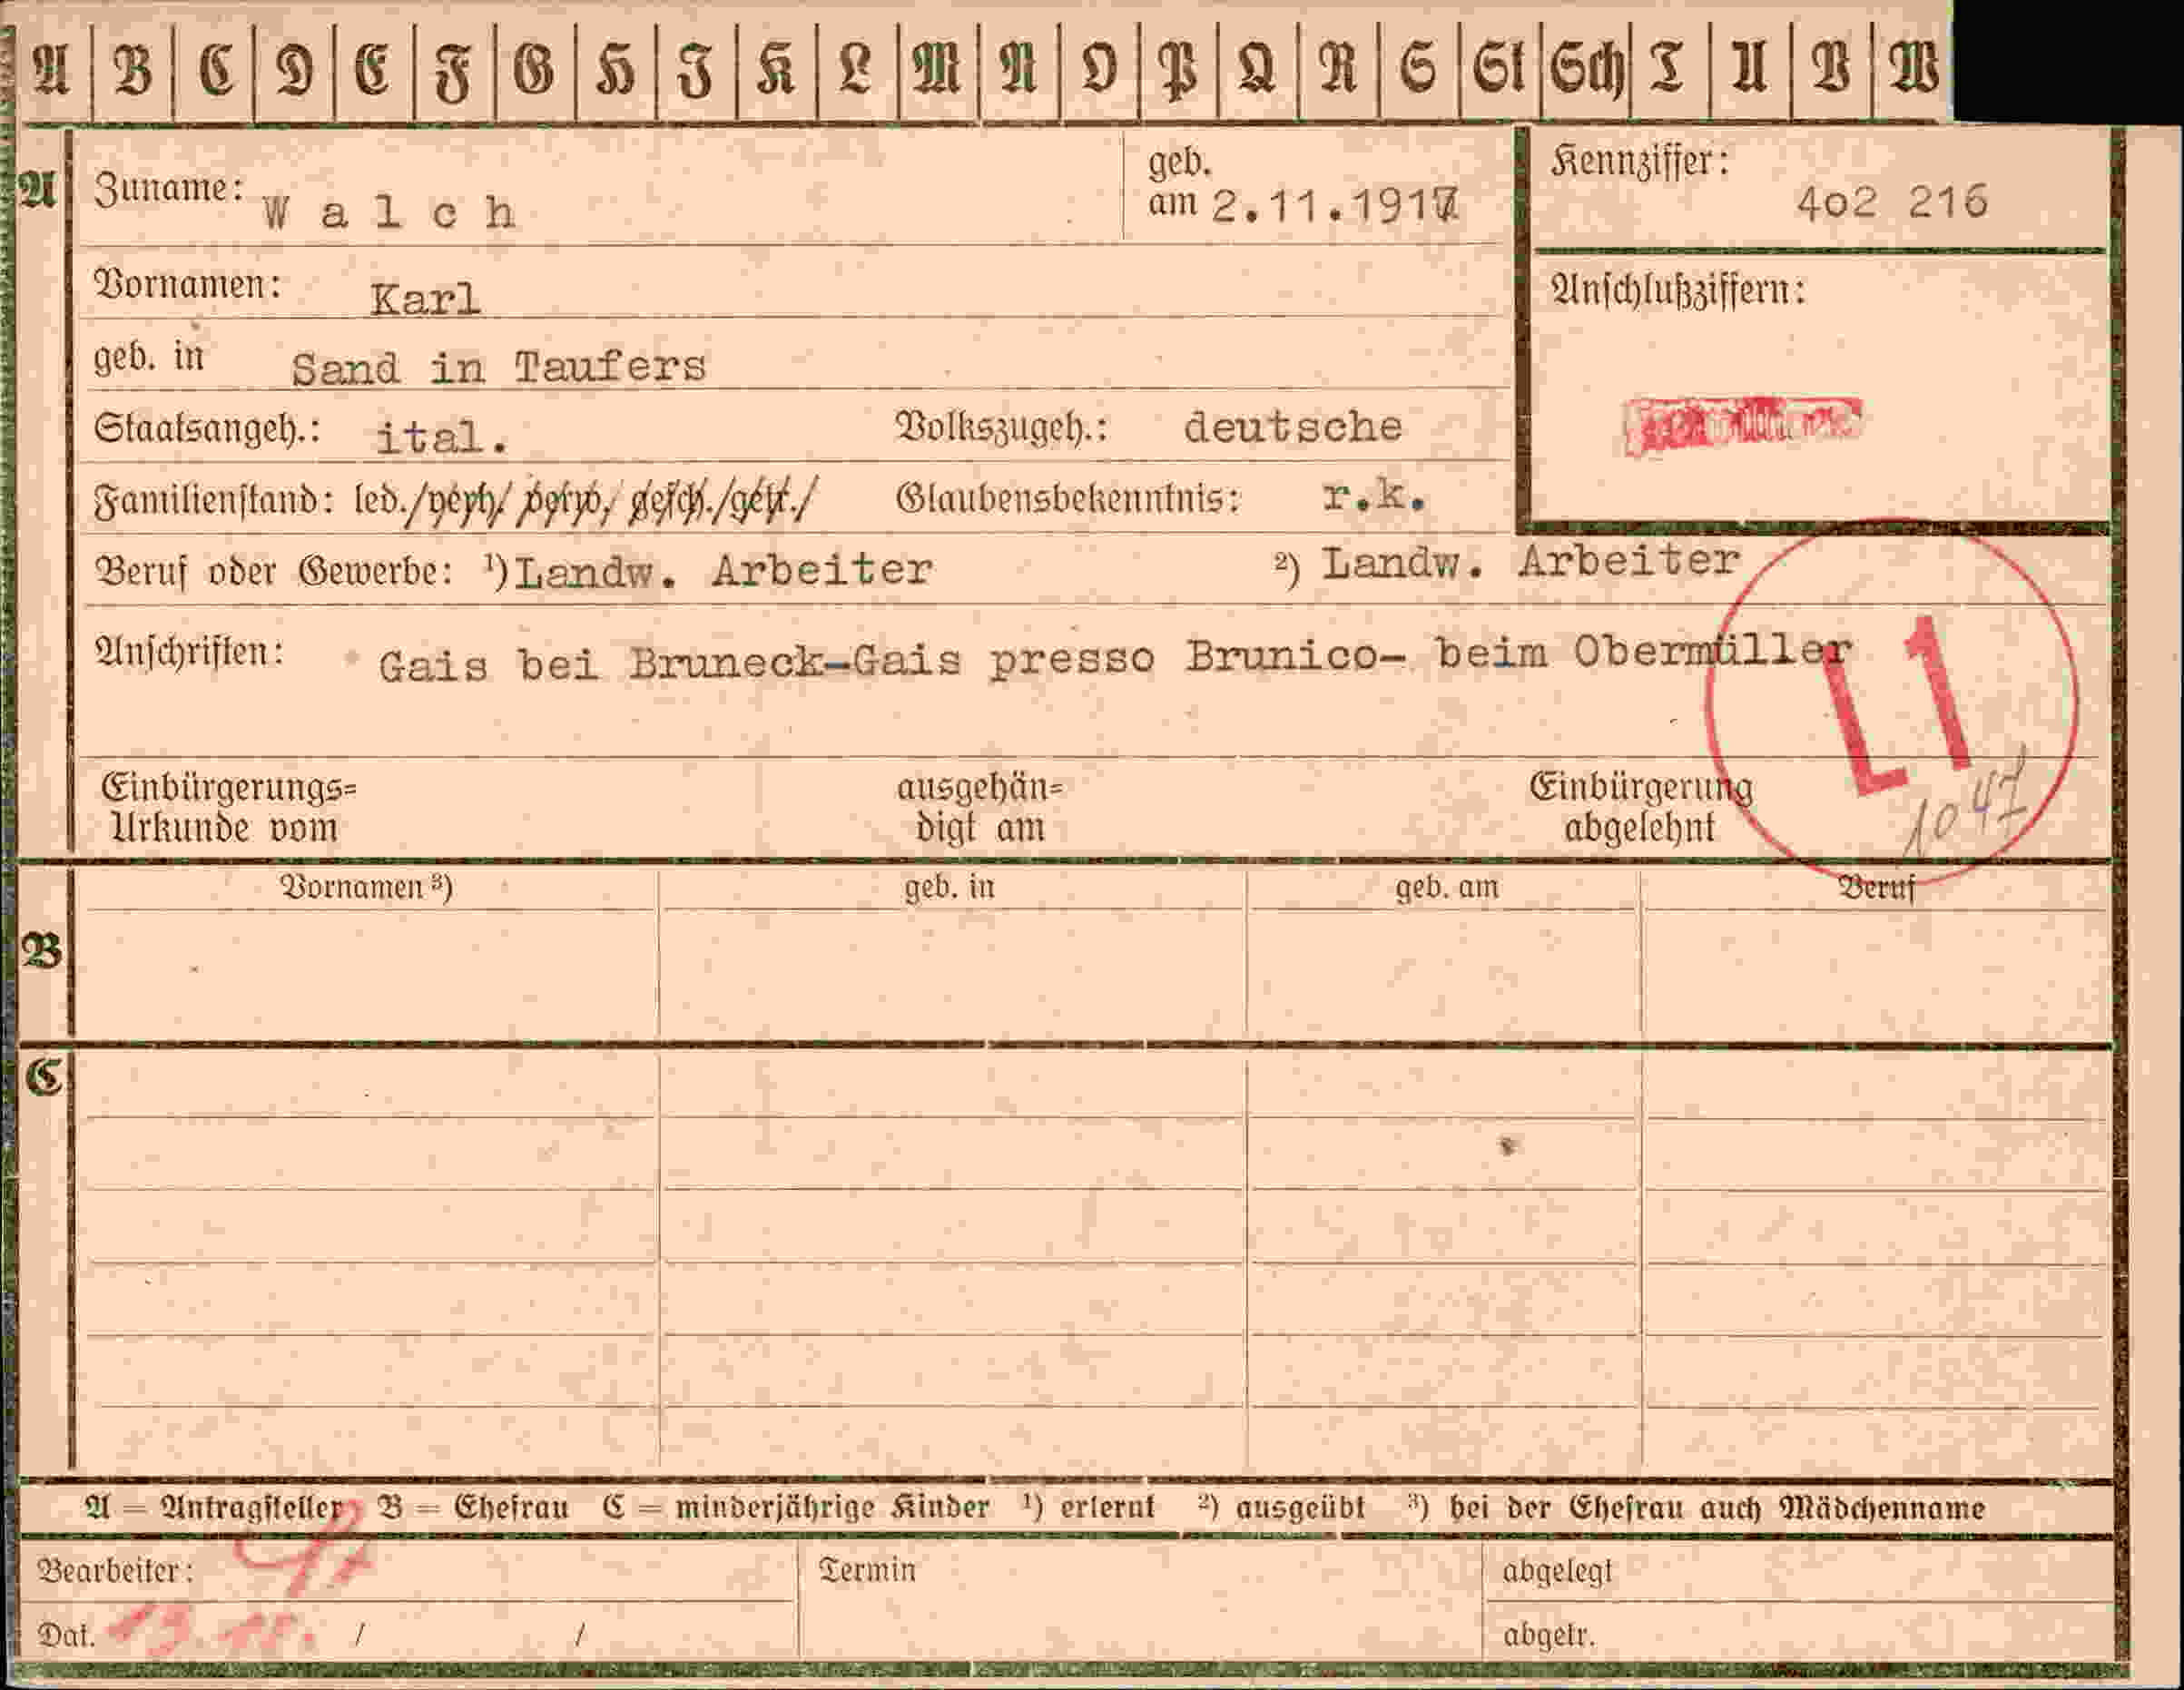 A B C D E F G H J K L M N O P Q R S St Sch T U V W
A
Zuname: Walch geb. am 2.11.1917 Kennziffer: 4o2 216
Vornamen: Karl Anschlußziffern:
geb. in Sand in Taufers
Staatsangeh.: ital. Volkszugeh.: deutsche
Familienstand: led./verh/ verw/ gesch./getr./ Glaubensbekenntnis: r.k.
Beruf oder Gewerbe: ¹) Landw. Arbeiter ²) Landw. Arbeiter
Anschriften: Gais bei Bruneck-Gais presso Brunico- beim Obermüller
L1
1047
Einbürgerungs= ausgehän= Einbürgerung
Urkunde vom digt am abgelehnt
Vornamen ³) geb. in geb. am Beruf
B
C
A = Antragsteller B = Ehefrau C = minderjährige Kinder ¹) erlernt ²) ausgeübt ³) bei der Ehefrau auch Mädchenname
Bearbeiter: Termin abgelegt
Dat. 13.11. / / abgetr.